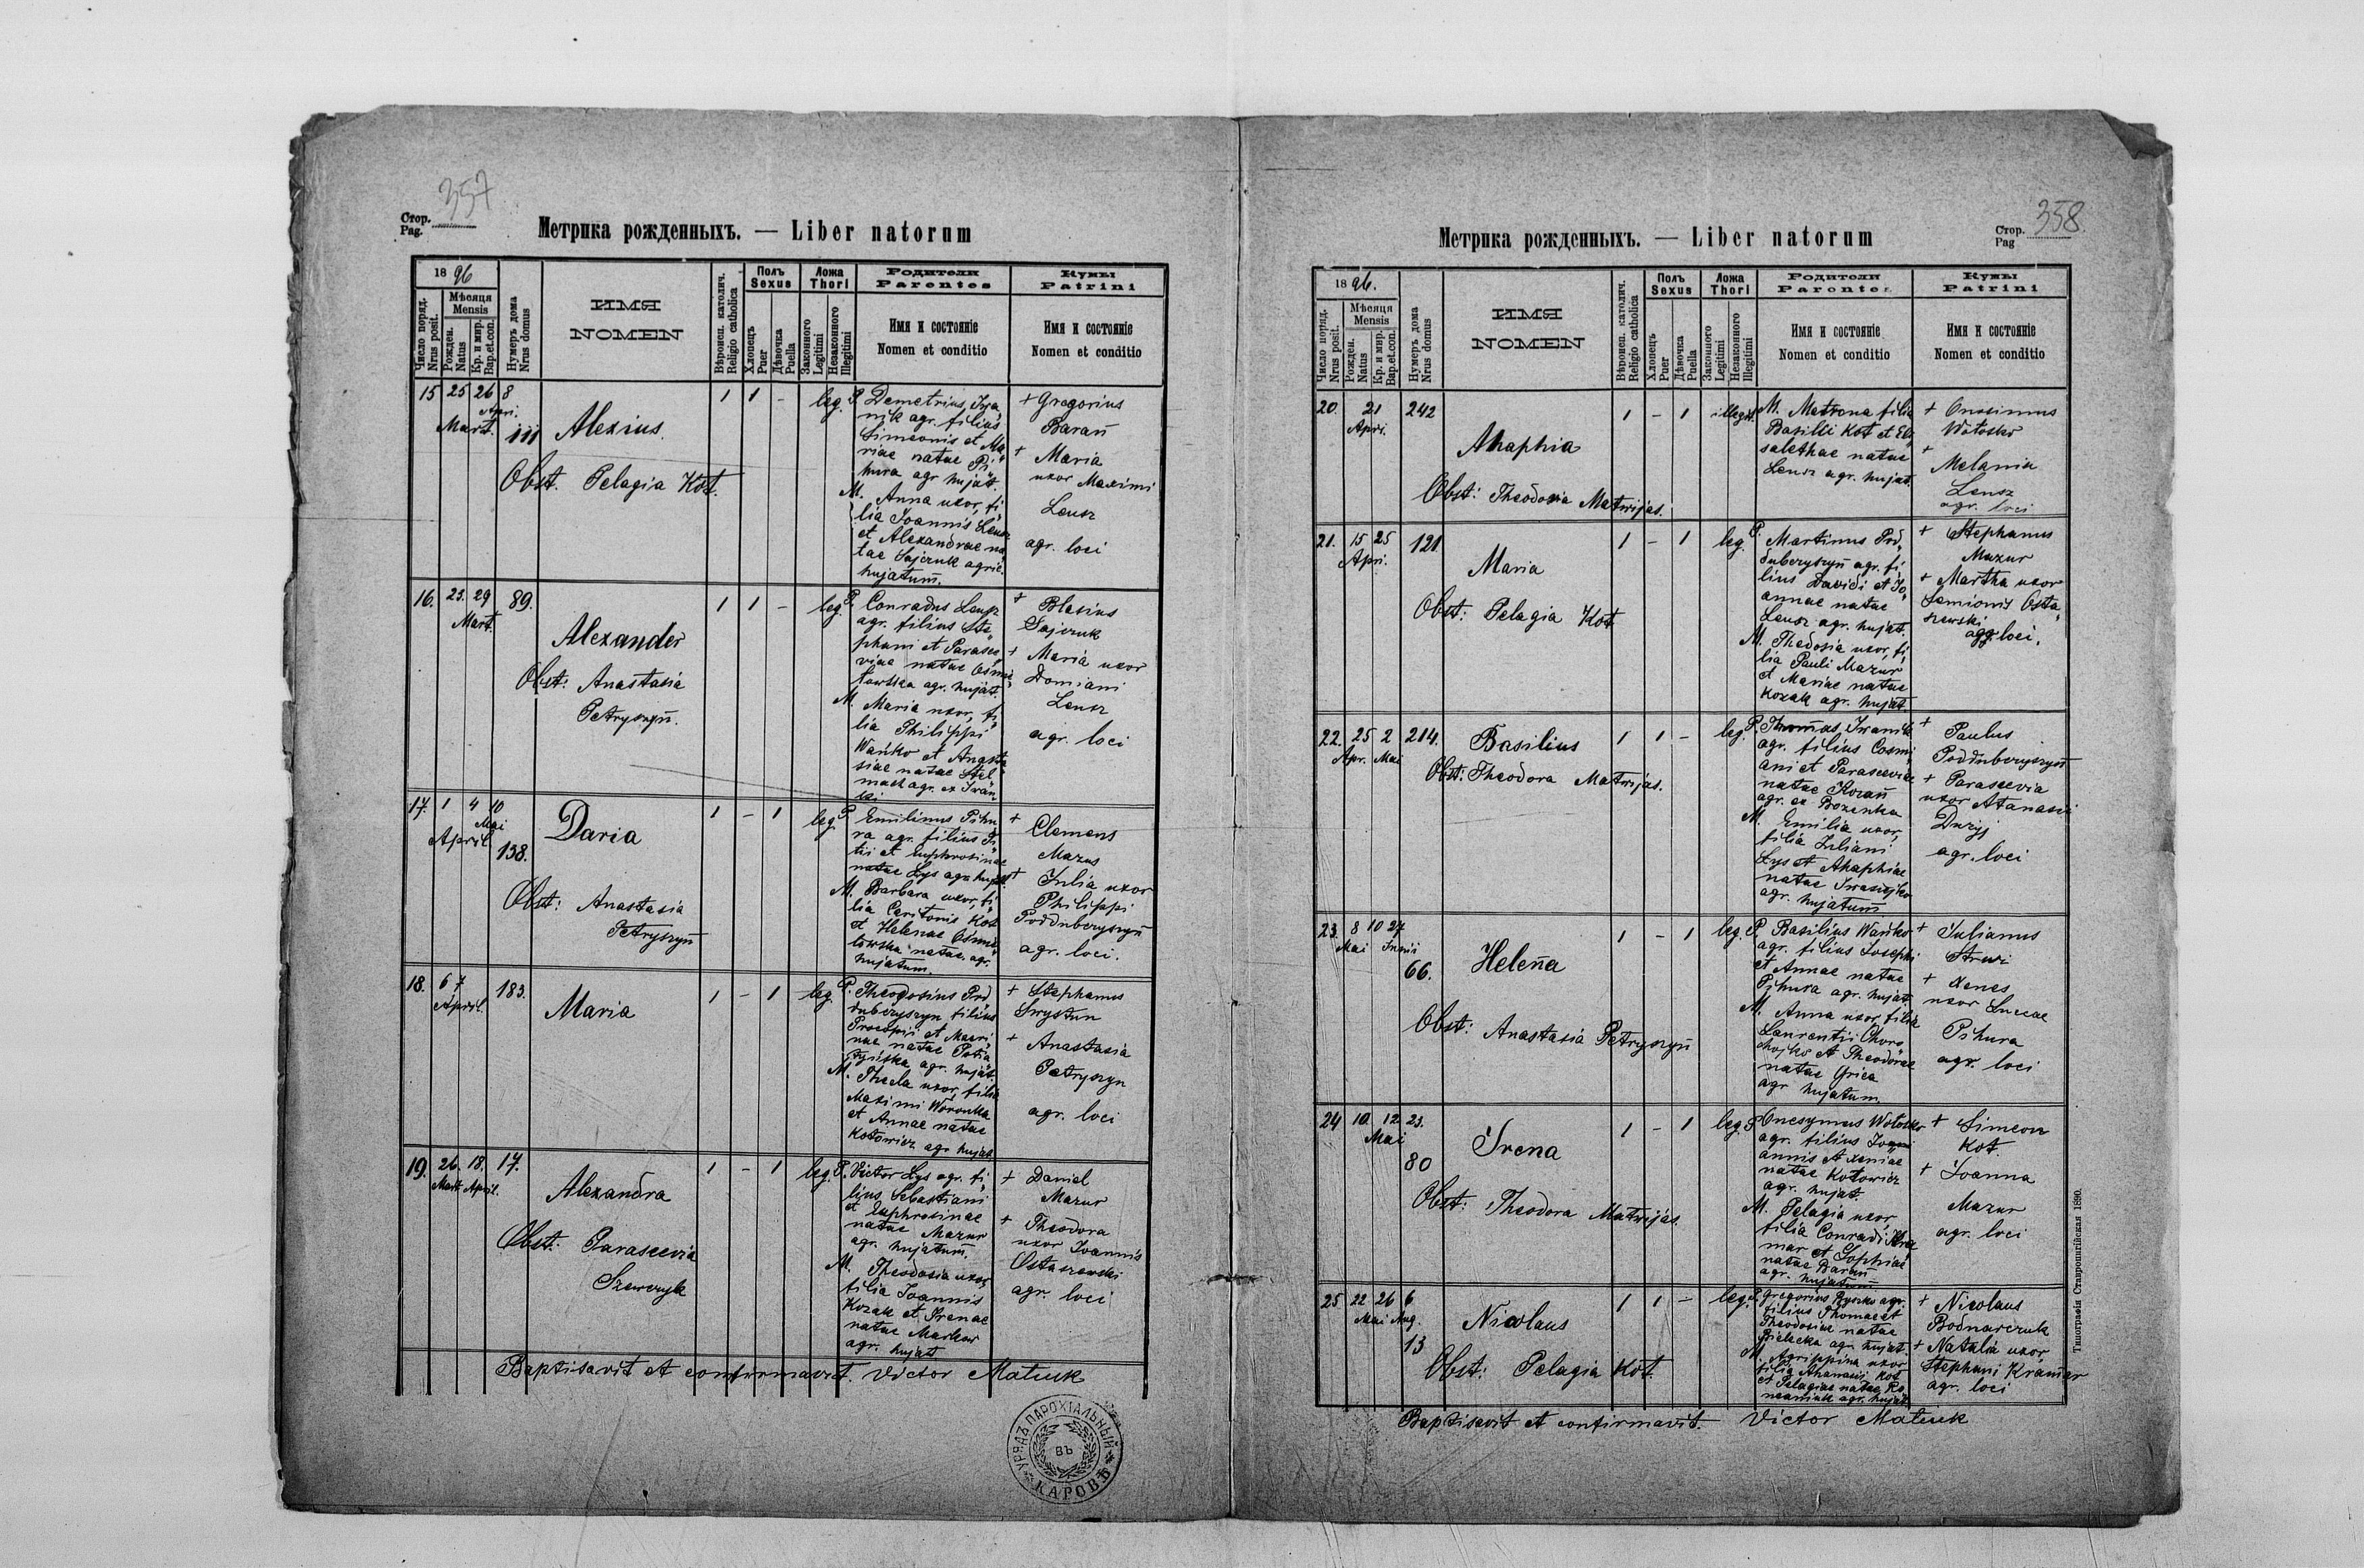 Стор.
Pag.
357
Метрика рожденныхъ. — Liber natorum
18 96
Число поряд.
Nrus posit.
Мѣсяця
Mensis
Рожден.
Natus
Кр. и мир.
Bap. et con.
Нумеръ дома
Nrus domus
ИМЯ
NOMEN
Вѣроисп. католич.
Religio catholica
Полъ
Sexus
Хлопецъ
Puer
Дѣвочка
Puella
Ложа
Thori
Законного
Legitimi
Незаконного
Illegitimi
Родители
Parentes
Имя и состояніе
Nomen et conditio
Кумы
Patrini
Имя и состояніе
Nomen et conditio
15 25 26 8
Apri.
Mart. 111
Alexius.
Obst. Pelagia Kot.
1 1 - leg.
P. Demetrius Iwa
nik agr. filius
Simeonis et Ma
riae natae Pi
hura agr hujat.
M. Anna uxor, fi
lia Joannis Leusz
et Alexandrae na
tae Sajczuk agric.
hujatum.
+ Gregorius
Baran
+ Maria
uxor Maximi
Leusz
agr. loci
16. 23. 29 89.
Mart.
Alexander
Obst: Anastasia
Petryszyn.
1 1 - leg.
P. Conradus Leusz
agr. filius Ste
phani et Parasce
viae natae Osmi
towska agr. hujat.
M. Maria uxor, fi
lia Philippi
Wańko et Anasta
siae natae Stel
mach agr. ex Iwan
ki
+ Blasius
Sajczuk
+ Maria uxor
Domiani
Leusz
agr. loci
17. 1 4 10
Mai
April 138.
Daria
Obst: Anastasia
Petryszyn
1 - 1 leg.
P. Emilinus Pihu
ra agr. filius Ti
tii et Euphrosinae
natae Lys agr. hujat
M. Barbara uxor, fi
lia Caritonis Kot
et Helenae Osmi
towska natae. agr.
hujatum.
+ Clemens
Mazur
+ Julia uxor
Philippi
Poddubczyszyn
agr. loci.
18. 6 7 183.
April.
Maria
1 - 1 leg.
P. Theodosius Pod
dubczyszyn filius
Procopii et Macri
nae natae
agr. hujat.
M. Thecla uxor, filia
Maximi Woronka
et Annae natae
Kotowicz agr hujat
+ Stephanus
Swystun
+ Anastasia
Petryszyn
agr. loci
19. 26. 18. 17.
Mart April.
Alexandra
Obst: Parascevia
Szewczyk
1 - 1 leg.
P. Victor Lys agr. fi
lius Sebastiani
et Euphrosinae
natae Mazur
agr. hujatum.
M. Theodosia uxor
filia Joannis
Kozak et Irenae
natae Markow
agr. hujat
+ Daniel
Mazur
+ Theodora
uxor Joannis
Ostaszewski
agr. loci
Baptisavit et confirmavit. Victor Matiuk
УРЯДЪ ПАРОХІАЛЬНЫЙ
ВЪ
КАРОВѢ
Метрика рожденныхъ. — Liber natorum
Стор.
Pag
358
18 96.
Число поряд.
Nrus posit.
Мѣсяця
Mensis
Рожден.
Natus
Кр. и мир.
Bap. et con.
Нумеръ дома
Nrus domus
ИМЯ
NOMEN
Вѣроисп. католич.
Religio catholica
Полъ
Sexus
Хлопецъ
Puer
Дѣвочка
Puella
Ложа
Thori
Законного
Legitimi
Незаконного
Illegitimi
Родители
Parentes
Имя и состояніе
Nomen et conditio
Кумы
Patrini
Имя и состояніе
Nomen et conditio
20. 21 242
Apri.
Ahaphia
Obst: Theodora Matwijas.
1 - 1 illegit.
M. Matrona filia
Basilii Kot et Eli
sabethae natae
Leusz agr. hujat.
+ Onosimus
Wołosko
+ Melania
Leusz
agr. loci
21. 15 25 121
Apri.
Maria
Obst: Pelagia Kot
1 - 1 leg.
P. Martinus Pod
dubczyszyn agr. fi
lius Davidi et Jo
annae natae
Leusz agr. hujat.
M. Thedosia uxor, fi
lia Pauli Mazur
et Mariae natae
Kozak agr. hujat.
+ Stephanus
Mazur
+ Martha uxor
Semionis Osta
szewski
agr loci.
22. 25 2 214.
Apr. Mai
Basilius
Obst: Theodora Matwijas.
1 1 - leg.
P. Thomas Iwanik
agr. filius Cosmi
ani et Parasceviae
natae
agr. ex
M. Emilia uxor,
filia Juliani
Lys et Ahaphiae
natae Iwasiejko
agr. hujatum
+ Paulus
Poddubczyszyn
+ Parascevia
uxor Atanasii
Duzij
agr. loci
23. 8 10 27
Mai Junii
66.
Helena
Obst: Anastasia Petryszyn
1 - 1 leg.
P. Basilius Wańko
agr. filius Josephi
et Annae natae
Pihura agr. hujat.
M. Anna uxor, filia
Laurentii Choro
chojko et Theodorae
natae Grica
agr hujatum.
+ Julianus
Struś
+ Xenes
uxor Lucae
Pihura
agr. loci
24 10. 12 23.
Mai
80
Irena
Obst: Theodora Matwijas.
1 - 1 leg.
P. Onesymus Wołosko
agr. filius Jo
annis et Xeniae
natae Kotowicz
agr. hujat.
M. Pelagia uxor,
filia Conradi Kra
mar et Sophiae
natae Baran
agr. hujatum
+ Simeon
Kot.
+ Joanna
Mazur
agr. loci
25 22 26 6
Mai Aug.
13
Nicolaus
Obst: Pelagia Kot.
1 1 - leg.
P. Gregorius Ryszko agr.
filius Thomae et
Theodosiae natae
Bielecka agr. hujat.
M. Agrippina uxor
filia Athanasii Kot
et Pelagiae natae
agr. hujat
+ Nicolaus
Bodnarczuk
+ Natalia uxor
Stephani Kramar
agr. loci
Baptisavit et confirmavit. Victor Matiuk
Типографія Ставропигійская 1890.